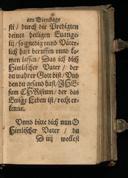 am Dienstage
sti / durch die Predigten
deiner heiligen Evange-
lij / so gnedig vnnd Väter-
lich hast beruffen vnnd ko-
men lassen / Das ich dich
Himlischer Vater / der
du wahrer Gott bist / Vnd
den du gesand hast / JHE-
sum CHRistum / der das
Ewige Leben ist / recht er-
kenne.
Vnnd bitte dich nun O
Himlischer Vater / du
D iiij wollest